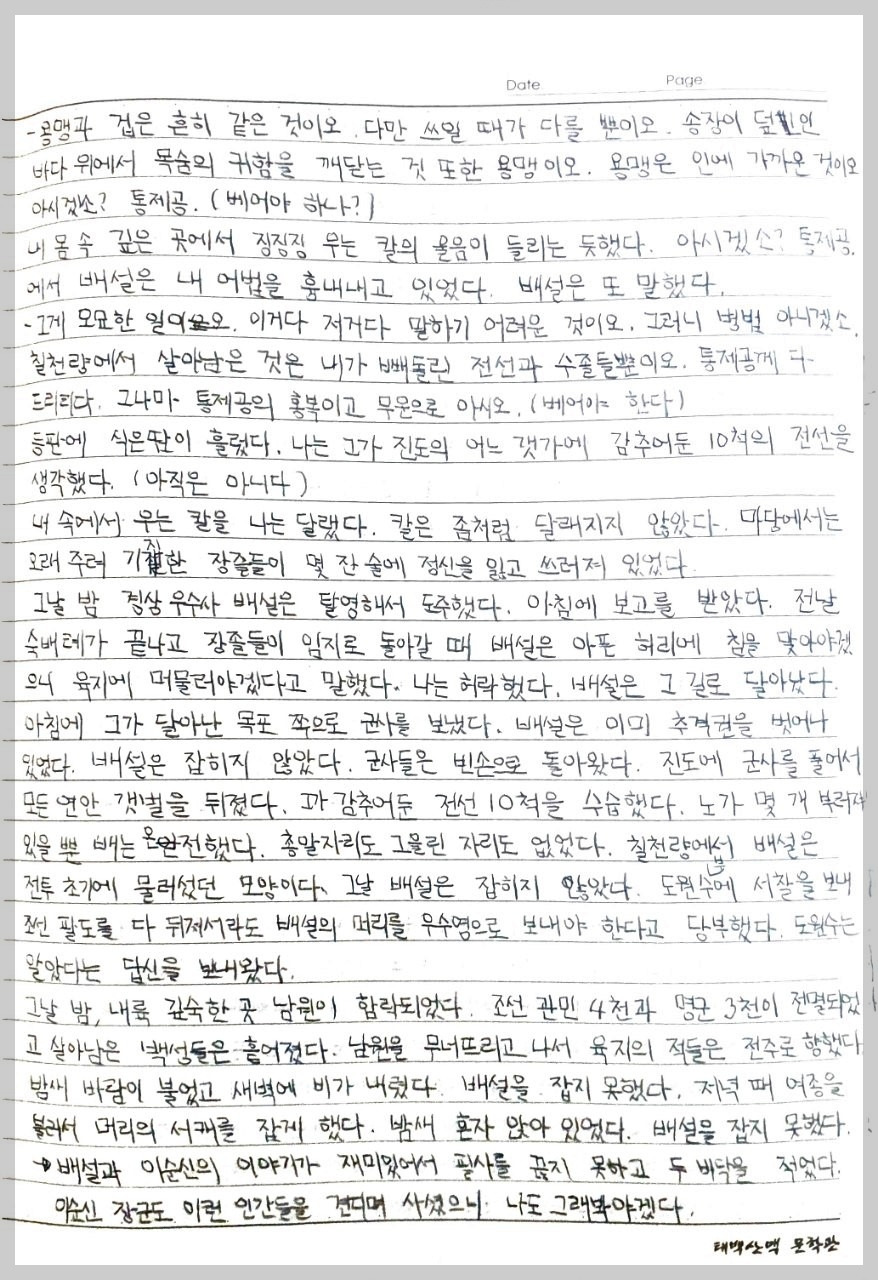 Date Page
- 용맹과 겁은 흔히 같은 것이오. 다만 쓰일 때가 다를 뿐이오. 송장이 덮인
바다 위에서 목숨의 귀함을 깨닫는 것 또한 용맹이오. 용맹은 인에 가까운 것이오
아시겠소? 통제공. (베어야 하나?)
내 몸 속 깊은 곳에서 징징징 우는 칼의 울음이 들리는 듯했다. 아시겠소? 통제공.
에서 배설은 내 어법을 흉내내고 있었다. 배설은 또 말했다.
- 그게 모묘한 일이오. 이거다 저거다 말하기 어려운 것이오. 그러니 병법 아니겠소.
칠천량에서 살아남은 것은 내가 빼돌린 전선과 수졸들뿐이오. 통제공께 다
드리리다. 그나마 통제공의 홍복이고 무운으로 아시오. (베어야 한다)
등판에 식은땀이 흘렀다. 나는 그가 진도의 어느 갯가에 감추어둔 10척의 전선을
생각했다. (아직은 아니다)
내 속에서 우는 칼을 나는 달랬다. 칼은 좀처럼 달래지지 않았다. 마당에서는
오래 주려 기진한 장졸들이 몇 잔 술에 정신을 잃고 쓰러져 있었다.
그날 밤 경상 우수사 배설은 탈영해서 도주했다. 아침에 보고를 받았다. 전날
숙배례가 끝나고 장졸들이 임지로 돌아갈 때 배설은 아픈 허리에 침을 맞아야겠
으니 육지에 머물러야겠다고 말했다. 나는 허락했다. 배설은 그 길로 달아났다.
아침에 그가 달아난 목포 쪽으로 군사를 보냈다. 배설은 이미 추격권을 벗어나
있었다. 배설은 잡히지 않았다. 군사들은 빈손으로 돌아왔다. 진도에 군사를 풀어서
모든 연안 갯벌을 뒤졌다. 그가 감추어둔 전선 10척을 수습했다. 노가 몇 개 부러져
있을 뿐 배는 온전했다. 총알자리도 그을린 자리도 없었다. 칠천량에서 배설은
전투 초기에 물러섰던 모양이다. 그날 배설은 잡히지 않았다. 도원수부에 서찰을 보내
조선 팔도를 다 뒤져서라도 배설의 머리를 우수영으로 보내야 한다고 당부했다. 도원수는
알았다는 답신을 보내왔다.
그날 밤, 내륙 깊숙한 곳 남원이 함락되었다. 조선 관민 4천과 명군 3천이 전멸되었
고 살아남은 백성들은 흩어졌다. 남원을 무너뜨리고 나서 육지의 적들은 전주로 향했다
밤새 바람이 불었고 새벽에 비가 내렸다. 배설을 잡지 못했다. 저녁 때 여종을
불러서 머리의 서캐를 잡게 했다. 밤새 혼자 앉아 있었다. 배설을 잡지 못했다.
→ 배설과 이순신의 이야기가 재미있어서 필사를 끊지 못하고 두 바닥을 적었다.
이순신 장군도 이런 인간들을 견디며 사셨으니 나도 그래봐야겠다.
태백산맥 문학관